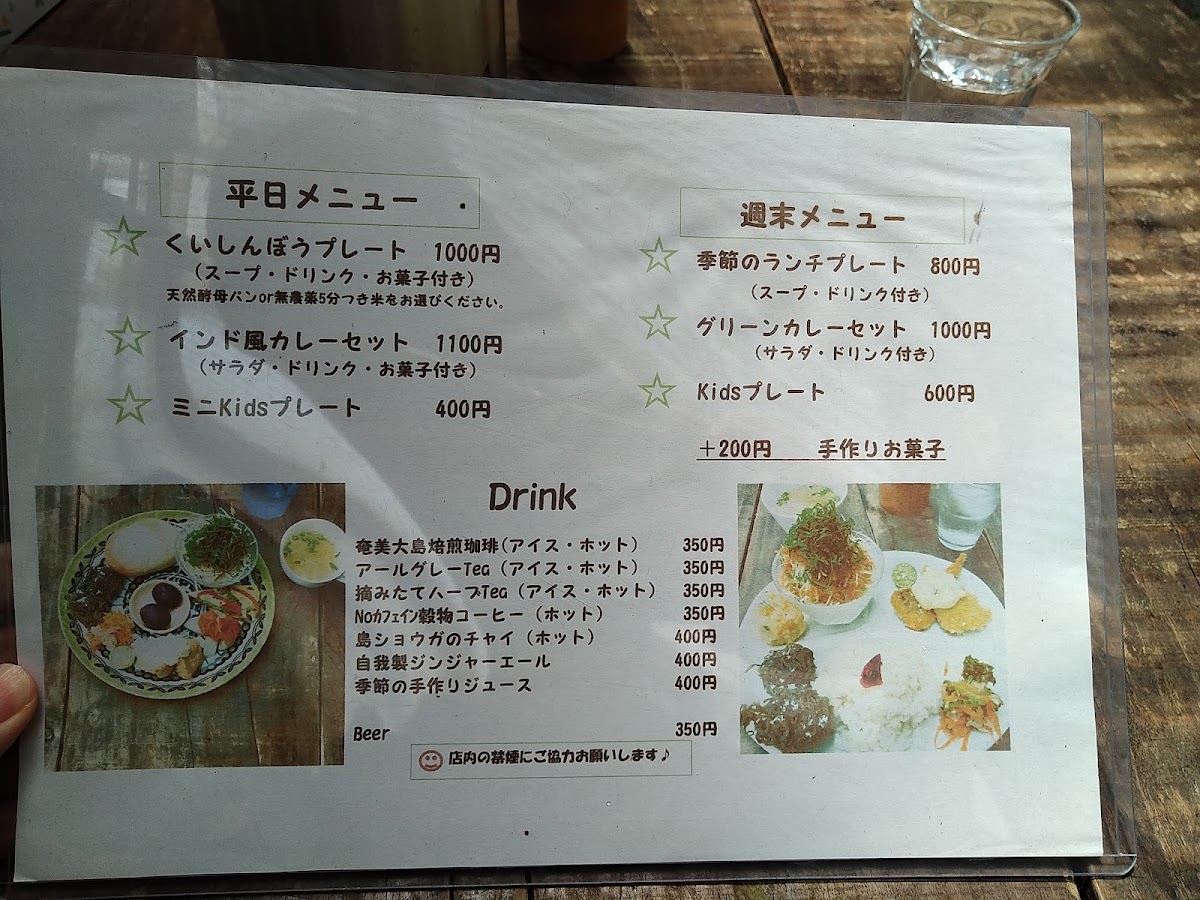 平日メニュー
くいしんぼうプレート 1000円
(スープ・ドリンク・お菓子付き)
天然酵母パンor無農薬5分つき米をお選びください。
インド風カレーセット 1100円
(サラダ・ドリンク・お菓子付き)
ミニKidsプレート 400円
週末メニュー
季節のランチプレート 800円
(スープ・ドリンク付き)
グリーンカレーセット 1000円
(サラダ・ドリンク付き)
Kidsプレート 600円
+200円 手作りお菓子
Drink
奄美大島焙煎珈琲(アイス・ホット) 350円
アールグレーTea(アイス・ホット) 350円
摘みたてハーブTea(アイス・ホット) 350円
Noカフェイン穀物コーヒー(ホット) 350円
島ショウガのチャイ(ホット) 400円
自我製ジンジャーエール 400円
季節の手作りジュース 400円
Beer 350円
店内の禁煙にご協力お願いします♪